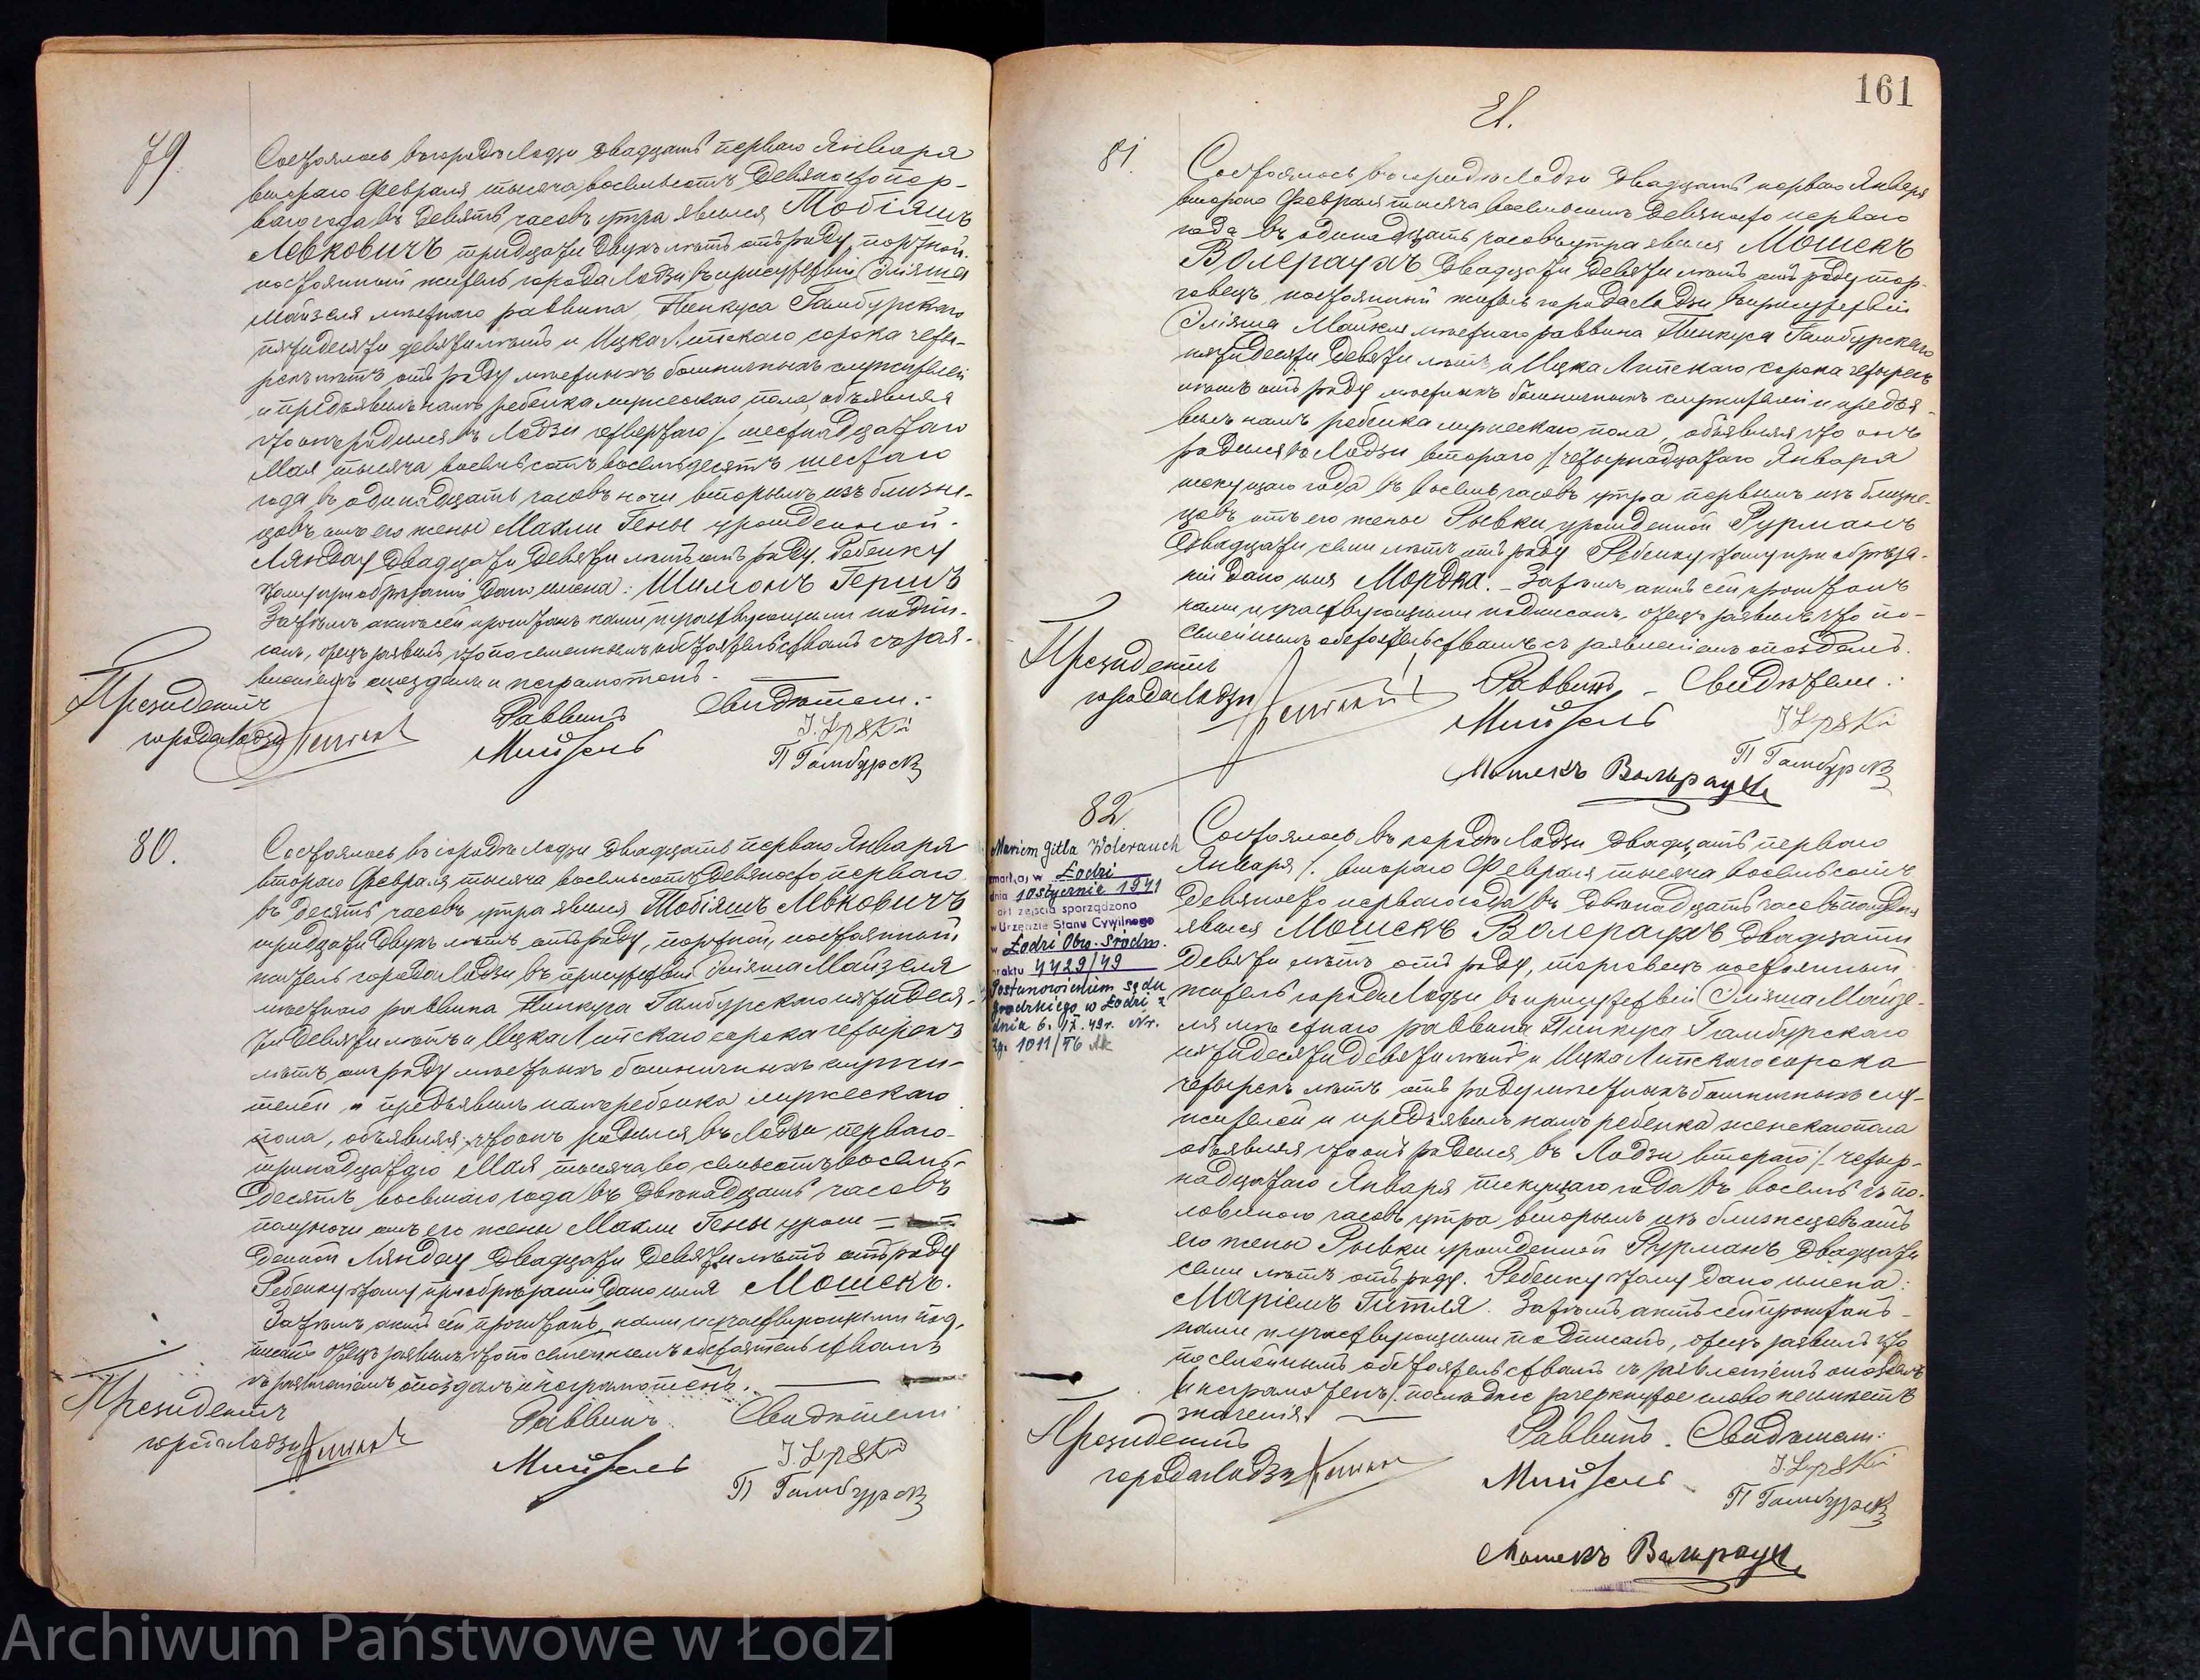 79.
Состоялось въ городѣ Лодзи двадцать перваго Января
втораго Февраля тысяча восемьсотъ девяносто пер-
ваго года въ девять часовъ утра явился Тобіяшъ
Левковичъ тридцати двухъ лѣтъ отъ роду, портной,
постоянный житель города Лодзи въ присутствіи Эліяша
Майзеля мѣстнаго раввина, Пинкуса Гамбурскаго
пятидесяти девяти лѣтъ и Ицка Липскаго сорока четы-
рехъ лѣтъ отъ роду мѣстныхъ божничныхъ служителей
и предъявилъ намъ ребенка мужескаго пола, объявляя
что онъ родился въ Лодзи четвертаго /. шестнадцатаго
Мая тысяча восемьсотъ восемьдесятъ шестаго
года въ одинадцать часовъ ночи вторымъ изъ близне-
цовъ отъ его жены Махли Гены урожденной
Ляндау двадцати девяти лѣтъ отъ роду. Ребенку
этому при обрѣзаніи даны имена: Шимонъ Гершъ
Затѣмъ актъ сей прочитанъ нами и участвующими подпи-
санъ, отецъ заявилъ что по семейнымъ обстоятельствамъ съ заяв-
леніемъ опоздалъ и неграмотенъ.
Президентъ
города Лодзи
Раввинъ
Свидѣтели:
Майзель
I. Lipski
П Гамбурск
80.
Состоялось въ городѣ Лодзи двадцать перваго Января
втораго Февраля тысяча восемьсотъ девяносто перваго
въ десять часовъ утра явился Тобіяшъ Левковичъ
тридцати двухъ лѣтъ отъ роду, портной, постоянный
житель города Лодзи въ присутствіи Эліяша Майзеля
мѣстнаго раввина Пинкуса Гамбурскаго пятидеся-
ти девяти лѣтъ и Ицка Липскаго сорока четырехъ
лѣтъ отъ роду мѣстныхъ божничныхъ служи-
телей и предъявилъ намъ ребенка мужескаго
пола, объявляя, что онъ родился въ Лодзи перваго
тринадцатаго Мая тысяча восемьсотъ восемь-
десятъ восьмаго года въ двѣнадцать часовъ
полуночи отъ его жены Махли Гены урож-
денной Ляндау двадцати девяти лѣтъ отъ роду
Ребенку этому при обрѣзаніи дано имя Мошекъ.
Затѣмъ актъ сей прочитанъ, нами и участвующими под-
писанъ отецъ заявилъ что по семейнымъ обстоятельствамъ
съ заявленіемъ опоздалъ и неграмотенъ.
Президентъ
города Лодзи
Раввинъ
Свидѣтели
Майзель
I. Lipski
П Гамбурск
161
81.
81.
Состоялось въ городѣ Лодзи двадцать перваго Января
втораго Февраля тысяча восемьсотъ девяносто перваго
года въ одинадцать часовъ утра явился Мошекъ
Волераухъ двадцати девяти лѣтъ отъ роду тор-
говецъ, постоянный житель города Лодзи въ присутствіи
Эліяша Майзеля мѣстнаго раввина Пинкуса Гамбурскаго
пятидесяти девяти лѣтъ и Ицка Липскаго сорока четырехъ
лѣтъ отъ роду мѣстныхъ божничныхъ служителей и предъя-
вилъ намъ ребенка мужескаго пола, объявляя что онъ
родился въ Лодзи втораго /. четырнадцатаго Января
текущаго года въ восемь часовъ утра первымъ изъ близне-
цовъ отъ его жены Рывки урожденной Рурманъ
двадцати семи лѣтъ отъ роду Ребенку этому при обрѣза-
ніи дано имя Мордка. Затѣмъ актъ сей прочитанъ
нами и участвующими подписанъ, отецъ заявилъ что по
семейнымъ обстоятельствамъ съ заявленіемъ опоздалъ.
Президентъ
города Лодзи
Раввинъ
Свидѣтели:
Майзель
I. Lipski
П Гамбурск
Мошекъ Вольраухъ
82
Mariem Gitla Wolerauch
zmarł(a) w Łodzi
dnia 10 stycznia 1941
akt zejścia sporządzono
w Urzędzie Stanu Cywilnego
w Łodzi Obw. Śródm.
nr aktu 4429/49
Postanowieniem sądu
Grodzkiego w Łodzi z
dnia 6. IX. 49r. Nr.
Zg. 1011/46
Состоялось въ городѣ Лодзи двадцать перваго
Января /. втораго Февраля тысяча восемьсотъ
девяносто перваго года въ двѣнадцать часовъ полудня
явился Мошекъ Волераухъ двадцати
девяти лѣтъ отъ роду, торговецъ постоянный
житель города Лодзи въ присутствіи Эліяша Майзе-
ля мѣстнаго раввина Пинкуса Гамбурскаго
пятидесяти девяти лѣтъ и Ицка Липскаго сорока
четырехъ лѣтъ отъ роду мѣстныхъ божничныхъ слу-
жителей и предъявилъ намъ ребенка женскаго пола
объявляя что онъ родился въ Лодзи втораго /. четыр-
надцатаго Января текущаго года въ восемь съ по-
ловиною часовъ утра вторымъ изъ близнецовъ отъ
его жены Рывки урожденной Рурманъ двадцати
семи лѣтъ отъ роду. Ребенку этому даны имена:
Маріемъ Гитля. Затѣмъ актъ сей прочитанъ
нами и участвующими подписанъ, отецъ заявилъ что
по семейнымъ обстоятельствамъ съ заявленіемъ опоздалъ
и неграмотенъ /. послѣднее зачеркнутое слово не имѣетъ
значенія.
Президентъ
города Лодзи
Раввинъ.
Свидѣтели:
Майзель
I. Lipski
П Гамбурск
Мошекъ Вольраухъ
Archiwum Państwowe w Łodzi